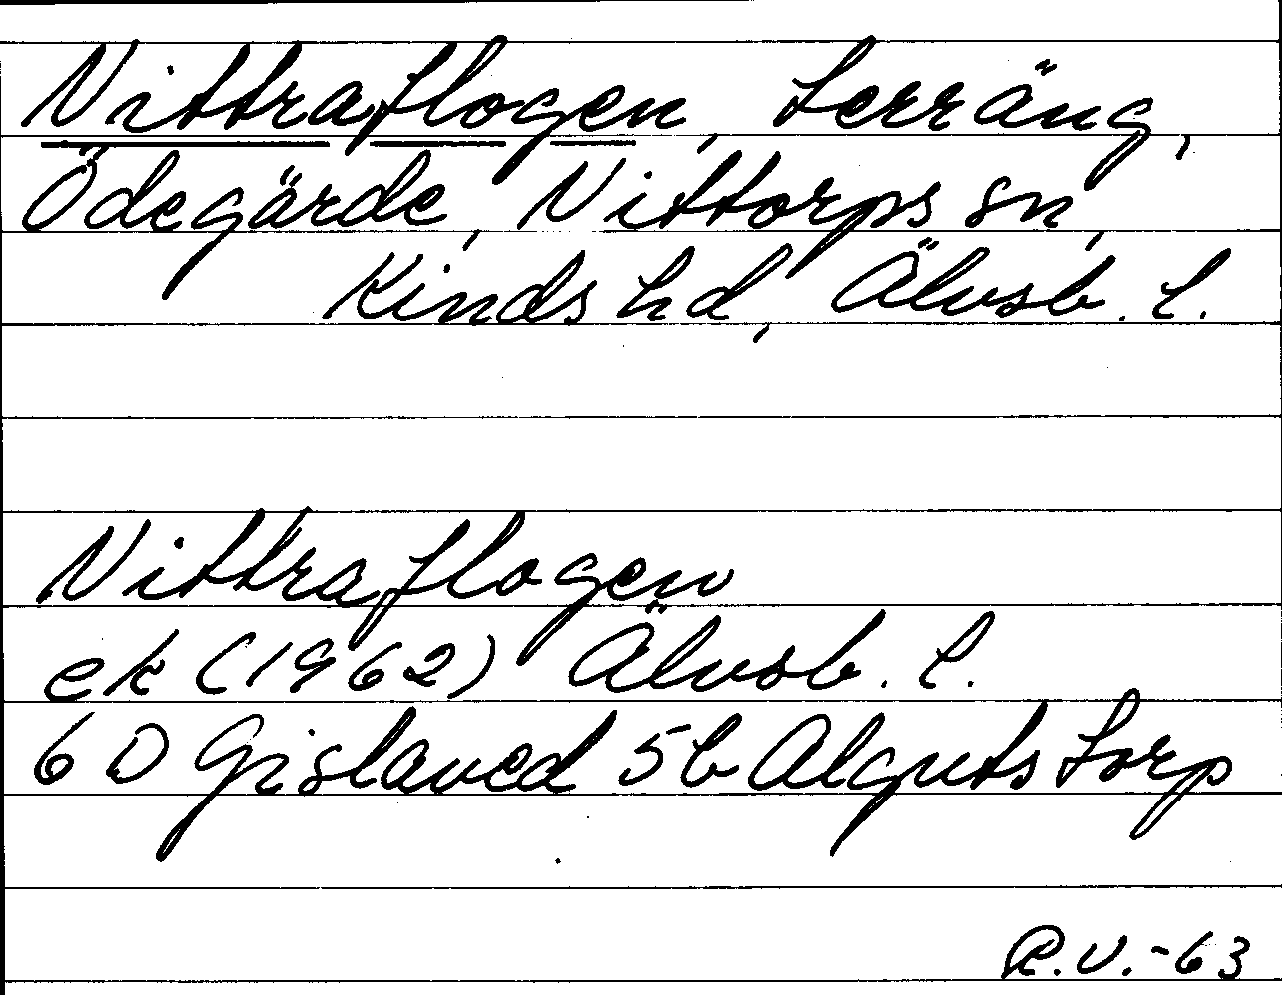 Nittraflogen, terräng,
Ödegärde, Nittorps sn,
Kinds hd, Älvsb. l.
Nittraflogen
ek (1962) Älvsb. l.
6D Gislaved 5b Algutstorp
R.V.-63